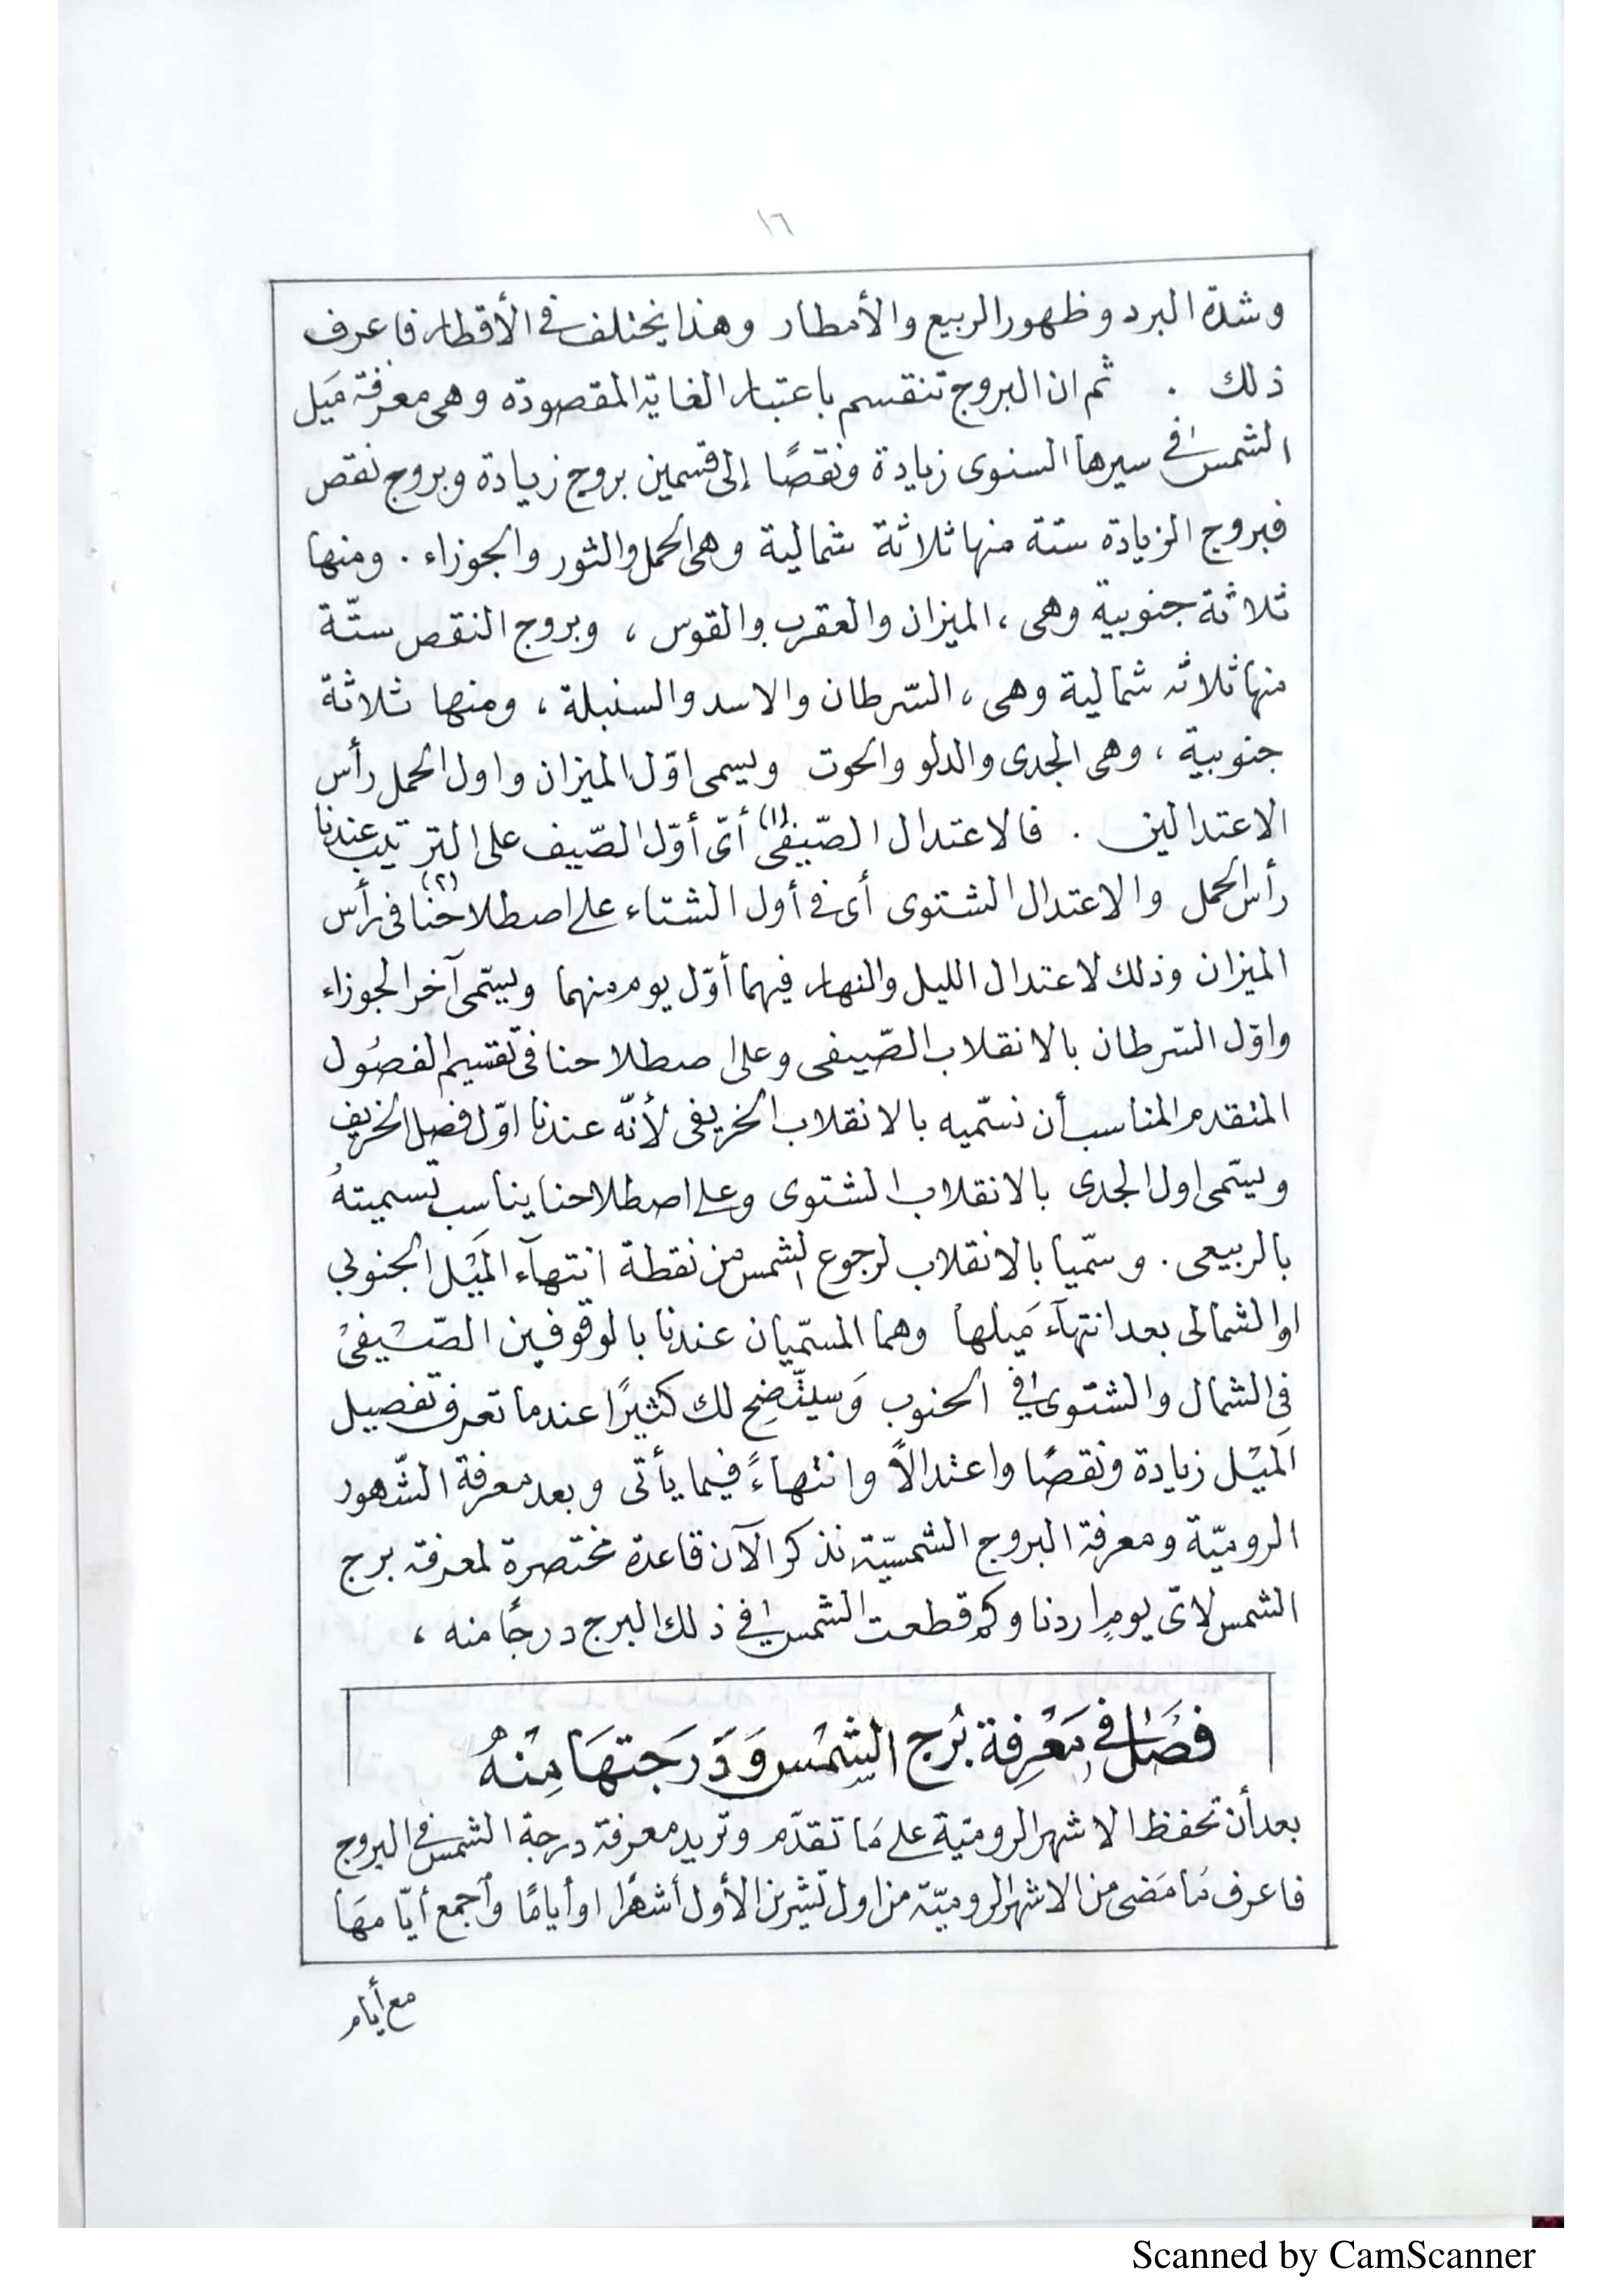 ١٦
وشدة البرد وظهور الربيع والأمطار وهذا يختلف في الأقطار فاعرف
ذلك . ثم ان البروج تنقسم باعتبار الغاية المقصودة وهى معرفة مَيل
الشمس في سيرها السنوى زيادة ونقصًا إلى قسمين بروج زيادة وبروج نقص
فبروج الزيادة ستة منها ثلاثة شمالية وهى الحمل والثور والجوزاء . ومنها
ثلاثة جنوبية وهى ، الميزان والعقرب والقوس ، وبروج النقص ستّة
منها ثلاثه شمالية وهى ، السّرطان والاسد والسنبلة ، ومنها ثلاثة
جنوبية ، وهى الجدى والدلو والحوت ويسمى اوّل الميزان واول الحمل رأس
الاعتدالين . فالاعتدال الصّيفى (١) أىّ أوّل الصّيف على الترتيب عندنا
رأس الحمل والاعتدال الشتوى أى في أول الشتاء على اصطلاحنا (٢) فى رأس
الميزان وذلك لاعتدال الليل والنهار فيهما أوّل يوم منهما ويسّمى آخر الجوزاء
واوّل السّرطان بالانقلاب الصّيفى وعلى اصطلاحنا فى تقسيم الفصُول
المتقدم المناسب أن نسّميه بالانقلاب الخريفى لأنّه عندنا اوّل فصل الخريف
ويسّمى اول الجدى بالانقلاب الشتوى وعلى اصطلاحنا يناسب تسميتهُ
بالربيعى . وسمّيا بالانقلاب لرجوع الشمس من نقطة انتهآء المَيْل الجنوبي
او الشمالى بعد انتهآء مَيلها وهما المسمّيان عندنا بالوقوفين الصّيْفىْ
فِي الشمال والشتوى في الجنوب وَسيتّضِح لك كثيرًا عندما تعرف تفصيل
المَيْل زيادة ونقصًا واعتدالاً وانتهاءً فيما يأتى وبعد معرفة الشّهور
الروميّة ومعرفة البروج الشمسيّة نذكر الآن قاعدة مختصرة لمعرفة برج
الشمس لاىّ يومٍ اردنا وكم قطعت الشمس في ذلك البرج درجًا منه ،
فصْل في مَعْرِفة بُرج الشِمْس وَدَرَجتهَا مِنْهُ
بعد أن تحفظ الاشهر الروميّة على مَا تقدّم وتريد معرفة درجة الشمس في البروج
فاعرف مَا مَضى من الاشهر الروميّة من اول تشرين الأول أشهرًا او أيامًا وٱجمع أيّامهَا
مع أيام
Scanned by CamScanner